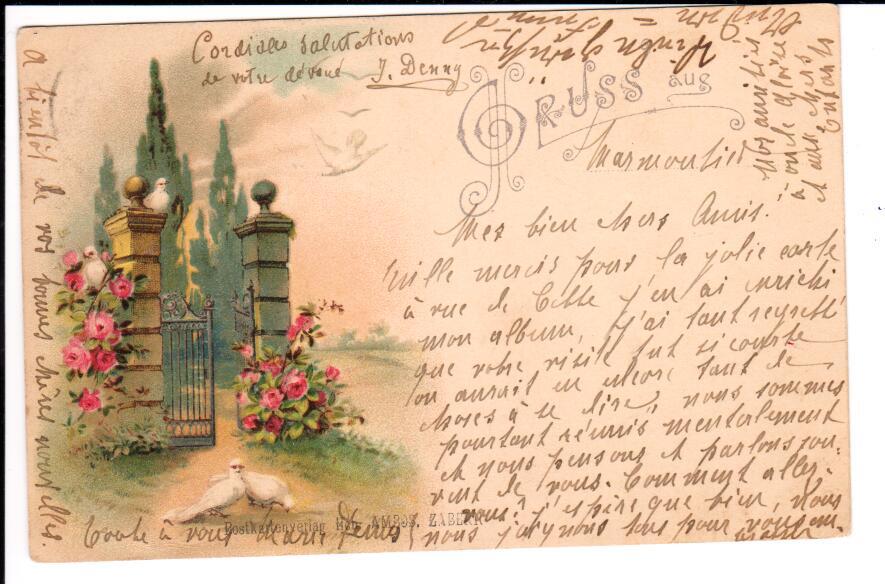 Cordiales salutations
de votre dévoué J. Denny
GRUSS aus
Marmoutier
Mes bien chers Amis!
Mille mercis pour la jolie carte
à vue de Cette j'en ai enrichi
mon album, j'ai tant regretté
que votre visite fut si courte
on aurait eu encore tant de
choses à se dire, nous sommes
pourtant réunis mentalement
et nous pensons et parlons sou-
vent de vous. Comment allez-
vous? j'espère que bien, Nous
nous nous tous pour vous
Toute à vous Marie
Postkartenverlag AMBOS, ZABERN
à bientôt de vos bonnes chères nouvelles.
Nos amitiés
à oncle
et aux chers
Enfants